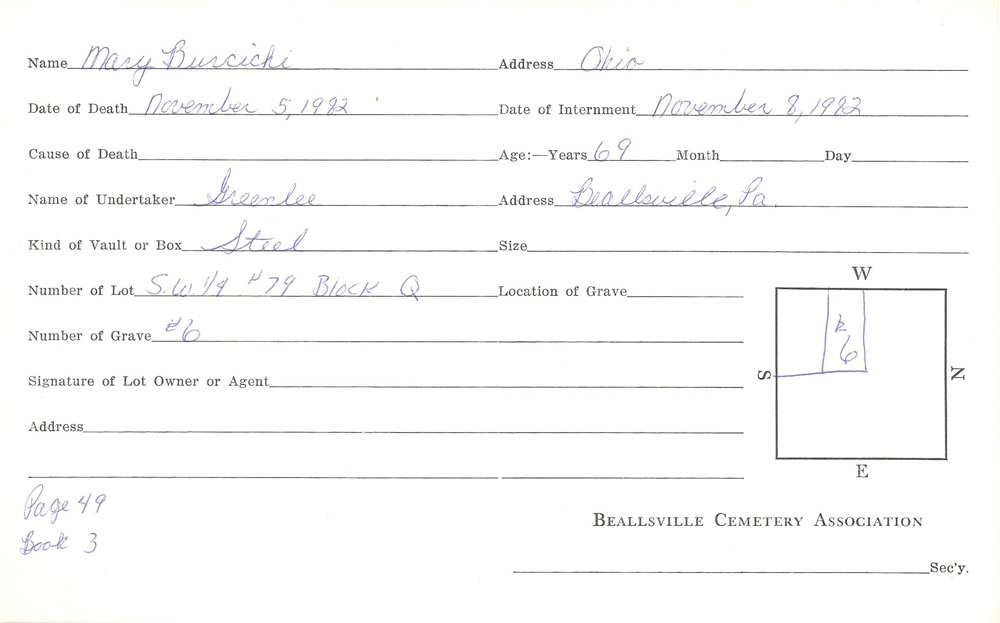 Name Mary Buscicki Address Ohio
Date of Death November 5, 1982 Date of Internment November 8, 1982
Cause of Death Age:—Years 69 Month Day
Name of Undertaker Greenlee Address Beallsville, Pa.
Kind of Vault or Box Steel Size
Number of Lot S.W 1/4 #79 Block Q Location of Grave
Number of Grave #6
Signature of Lot Owner or Agent
Address
W
S
N
E
# 6
Page 49
Book 3
BEALLSVILLE CEMETERY ASSOCIATION
Sec'y.